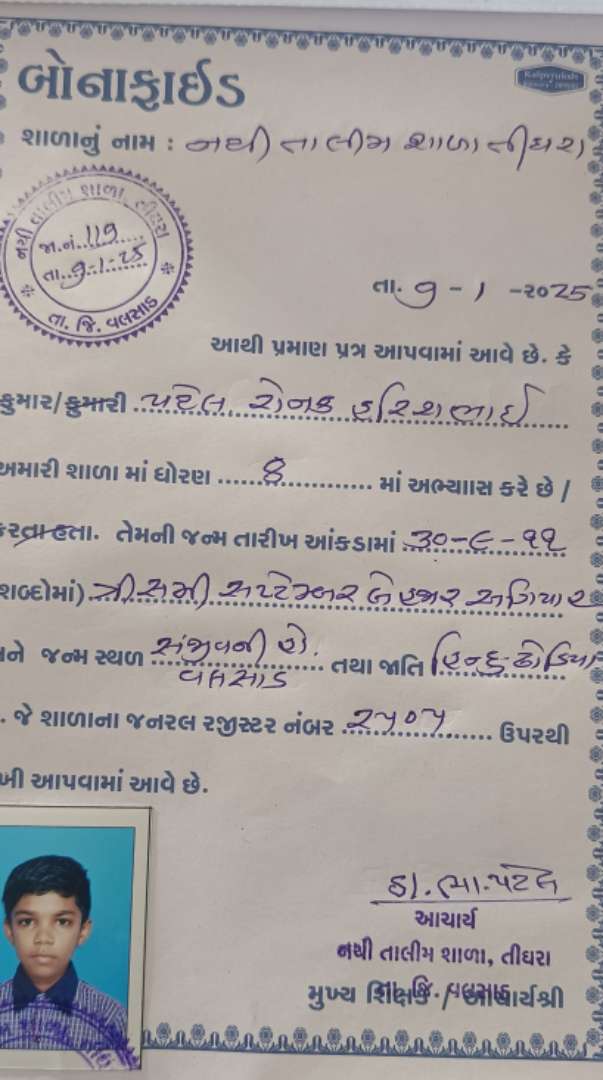 બોનાફાઈડ
Kalpvruksh
શાળાનું નામ : નથી તાલીમ શાળા તીઘરા
નથી તાલીમ શાળા, તીઘરા
જા.નં. 119
તા. 9-1-25
તા. જિ. વલસાડ
તા. 9 - 1 -૨૦25
આથી પ્રમાણ પત્ર આપવામાં આવે છે. કે
કુમાર/કુમારી પટેલ રોનક હરિશભાઈ
અમારી શાળા માં ધોરણ 8 માં અભ્યાાસ કરે છે /
કરતા હતા. તેમની જન્મ તારીખ આંકડામાં ૩૦-૯-૧૧
શબ્દોમાં) ત્રીસમી સપ્ટેમ્બર બે હજાર અગિયાર
ને જન્મ સ્થળ સંજીવની હો. તથા જાતિ હિન્દુ-ઢોડિયા
વલસાડ
. જે શાળાના જનરલ રજીસ્ટર નંબર ૨૫૦૫ ઉપરથી
ખી આપવામાં આવે છે.
ડા. ભા. પટેલ
આચાર્ય
નથી તાલીમ શાળા, તીઘરા
તા. જિ. વલસાડ
મુખ્ય શિક્ષક / આચાર્યશ્રી